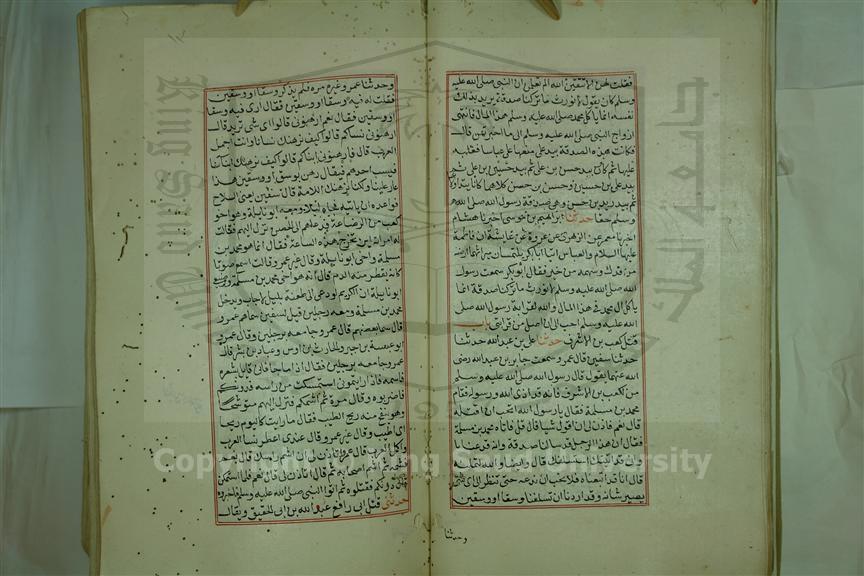 فقلت لهن الا تتقين الله الم تعلمن ان النبي صلى الله عليه
وسلم كان يقول لا نورث ما تركنا صدقة يريد بذلك
نفسه انما ياكل ال محمد صلى الله عليه وسلم هذا المال فانتهى
ازواج النبي صلى الله عليه وسلم الى ما اخبرتهن قال
فكانت هذه الصدقة بيد علي منعها علي عباسا فغلبه
عليها ثم كان بيد حسن بن علي ثم بيد حسين بن علي ثم
بيد علي بن حسين وحسن بن حسن كلاهما كانا يتداولانها
ثم بيد زيد بن حسن وهي صدقة رسول الله صلى الله عليه
وسلم حقا حدثنا ابراهيم بن موسى اخبرنا هشام
اخبرنا معمر عن الزهري عن عروة عن عائشة ان فاطمة
عليها السلام والعباس اتيا ابا بكر يلتمسان ميراثهما ارضه
من فدك وسهمه من خيبر فقال ابو بكر سمعت رسول
الله صلى الله عليه وسلم لا نورث ما تركنا صدقة انما
ياكل ال محمد في هذا المال والله لقرابة رسول الله صلى
الله عليه وسلم احب الي ان اصل من قرابتي باب
قتل كعب بن الاشرف حدثنا علي بن عبد الله حدثنا
حدثنا سفين قال عمرو سمعت جابر بن عبد الله رضي
الله عنهما يقول قال رسول الله صلى الله عليه وسلم
من لكعب بن الاشرف فانه قد اذى الله ورسوله فقام
محمد بن مسلمة فقال يا رسول الله اتحب ان اقتله
قال نعم فاذن لي ان اقول شيا قال قل فاتاه محمد بن مسلمة
فقال ان هذا الرجل قد سالنا صدقة وانه قد عنانا
واني قد اتيتك استسلفك قال وايضا والله لتملنه
قال انا قد اتبعناه فلا نحب ان ندعه حتى ننظر الى اي شي
يصير شانه وقد اردنا ان تسلفنا وسقا او وسقين
وحدثنا
وحدثنا عمرو غير مرة فلم يذكر وسقا او وسقين
فقلت له فيه وسقا او وسقين فقال ارى فيه وسقا
او وسقين فقال نعم ارهنوني قالوا اي شي تريد قال
ارهنوني نساكم قالوا كيف نرهنك نسانا وانت اجمل
العرب قال فارهنوني ابناكم قالوا كيف نرهنك ابنانا
فيسب احدهم فيقال رهن بوسق او وسقين هذا
عار علينا ولكنا نرهنك اللامة قال سفين يعني السلاح
فواعده ان ياتيه فجاه ليلا ومعه ابو نايلة وهو اخو
كعب من الرضاعة فدعاهم الى الحصن فنزل اليهم فقالت
له امراته اين تخرج هذه الساعة فقال انما هو محمد بن
مسلمة واخي ابو نايلة وقال غير عمرو قالت اسمع صوتا
كانه يقطر منه الدم قال انما هو اخي محمد بن مسلمة ورضيعي
ابو نايلة ان الكريم لو دعي الى طعنة بليل لاجاب ويدخل
محمد بن مسلمة ومعه رجلين قيل لسفين سماهم عمرو
قال سما بعضهم قال عمرو جا معه برجلين وقال غير عمرو
ابو عبس بن جبر والحارث بن اوس وعباد بن بشر قال
عمرو جا معه برجلين فقال اذا ما جا فاني قايل بشعره
فاشمه فاذا رايتموني استمكنت من راسه فدونكم
فاضربوه وقال مرة ثم اشمكم فنزل اليهم متوشحا
وهو ينفح منه ريح الطيب فقال ما رايت كاليوم ريحا
اي اطيب وقال غير عمرو قال عندي اعطر نسا العرب
واكمل العرب قال عمرو اتاذن لي ان اشم راسك قال نعم
فشمه ثم اشم اصحابه ثم قال اتاذن لي قال نعم فلما استمكن
قال دونكم فقتلوه ثم اتوا النبي صلى الله عليه وسلم فاخبروه
حدثني قتل ابي رافع عبد الله بن ابي الحقيق ويقال
جامعة الملك سعود
King Saud University
Copyright © King Saud University